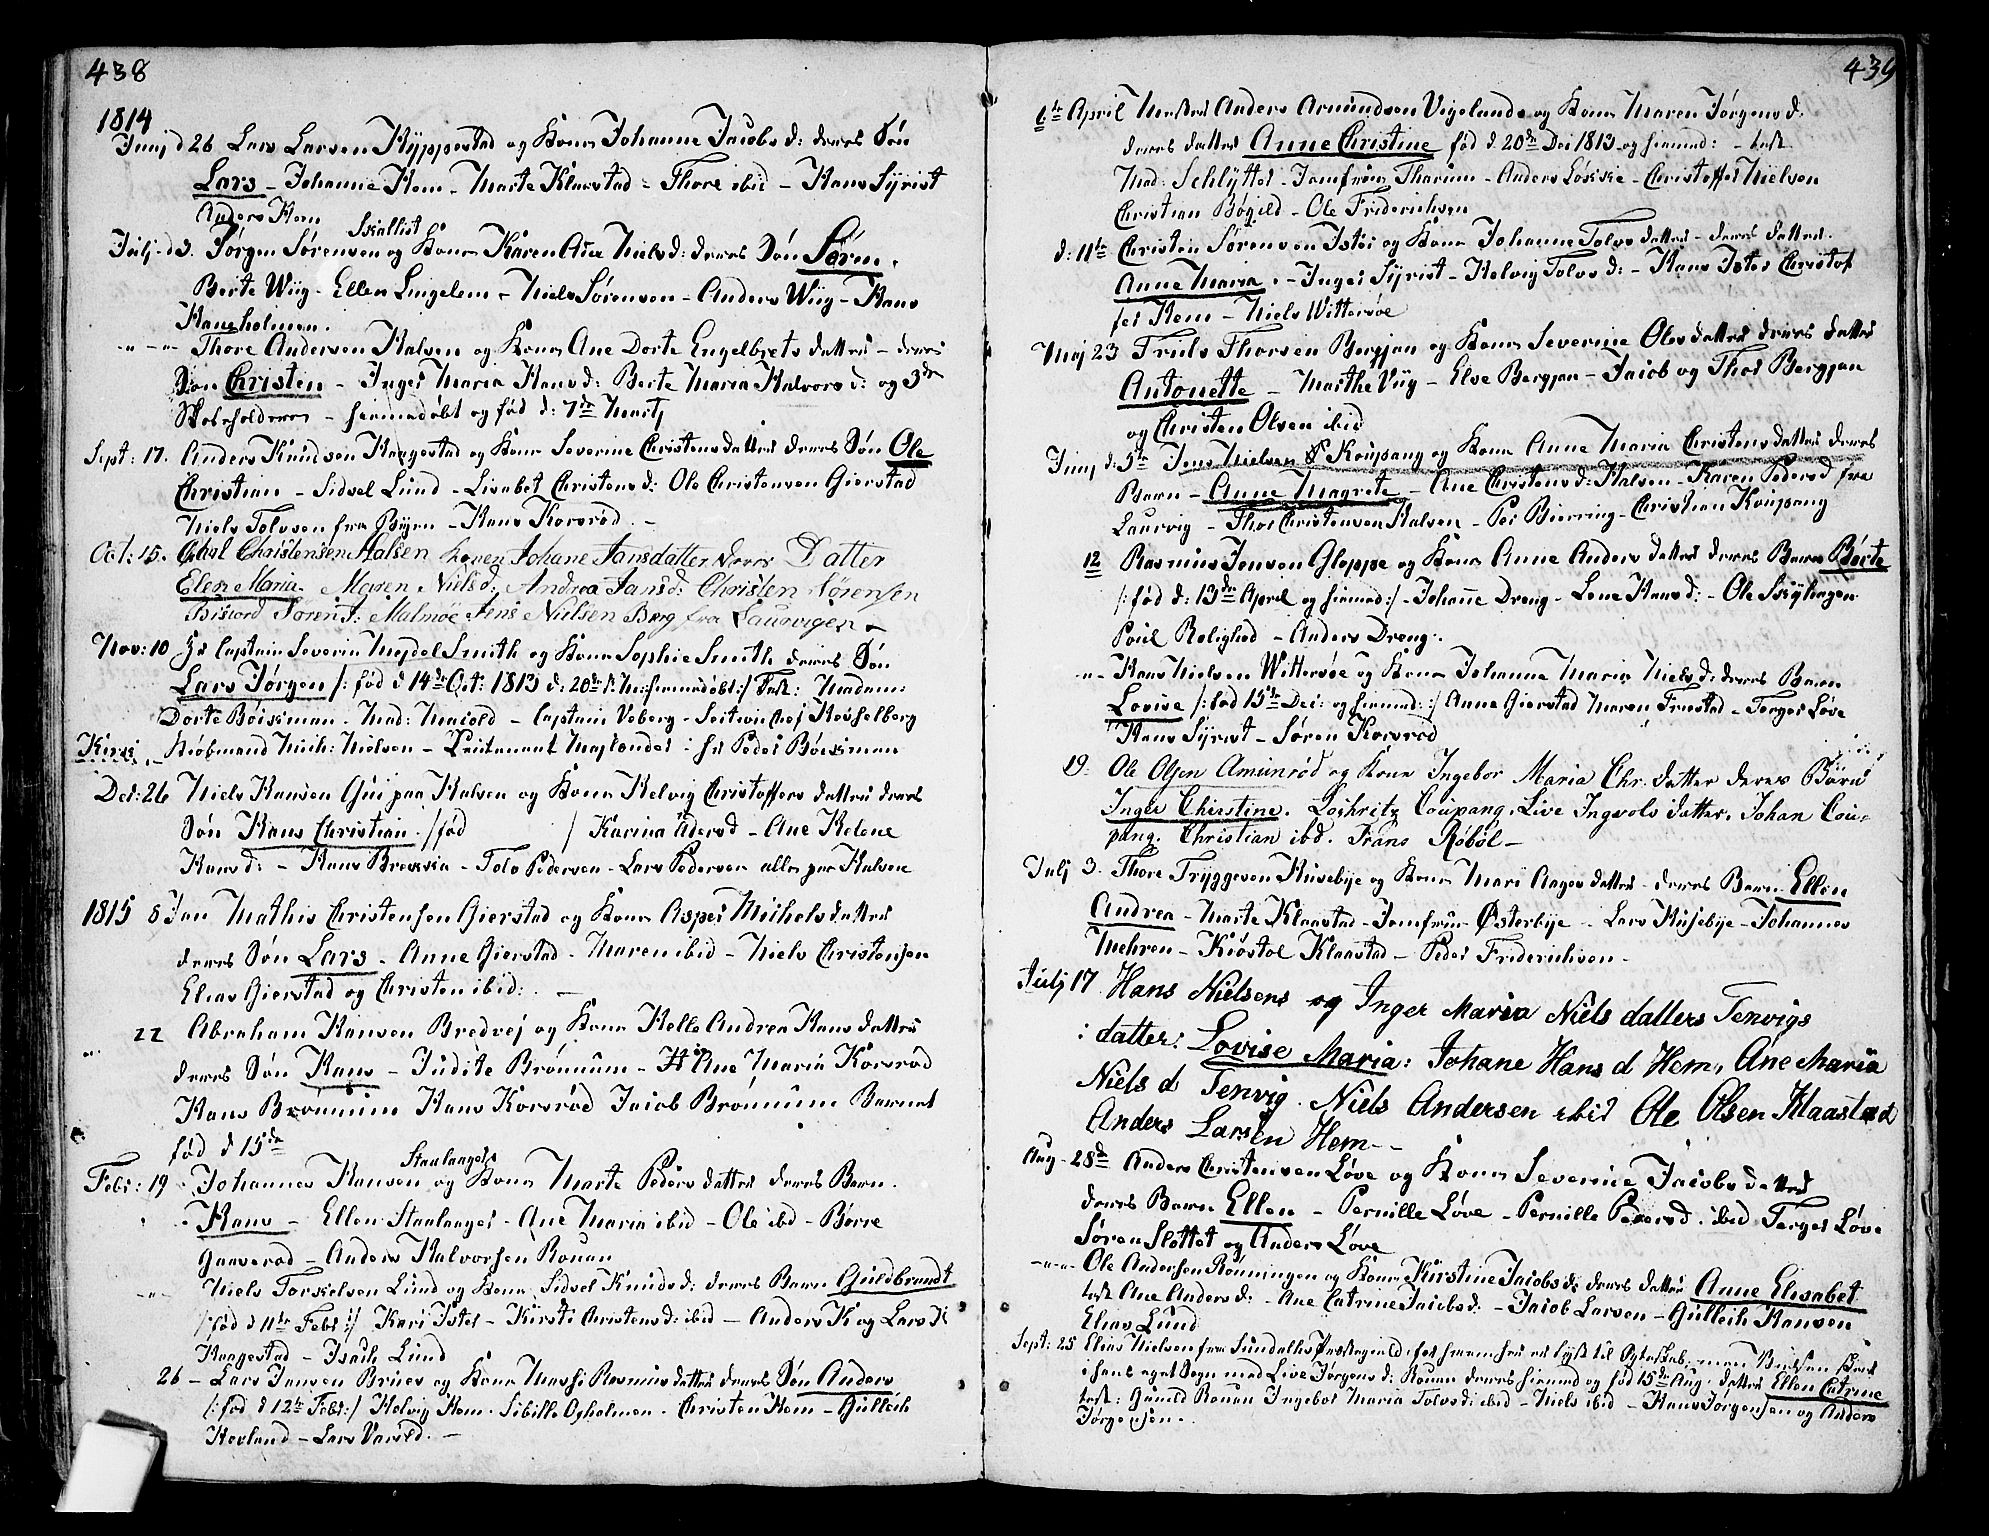 438
1814
Junj d 26 Lars Larsen Kyppestad og Kone Johanne Jacobs d: deres Søn
Lars – Johanne Hem – Marte Klaastad – Thore ibid – Hans Syrist
Anders Hem
Skallist
Julj d 3. Jørgen Sørensen og Kone Karen Ane Niels d: deres Søn Søren.
Berte Wiig – Ellen Lingelem – Niels Sørensen – Anders Wiig – Hans
Kaupholmen.
-"-"- Thore Andersen Halsen og Kone Ane Dorte Engelbrets datter – deres
Søn Christen – Inger Maria Hans d: Berte Maria Halvors d: og 3de
– hiemmedøbt og fød d: 7de Martj
Sept: 17. Anders Knudsen Haugestad og Kone Severine Christens datter deres Søn Ole
Christian – Sidsel Lund – Lisabet Christens d: Ole Christensen Gierstad
Niels Tolvsen fra Byen – Hans Korsrød. –
Oct: 15. Christensen Halsen konen Johane Jansdatter deres Datter
Elen Maria. Maren Niels d: Andrea Jans d: Christen Sørensen
Bisiord Søren J: Malmøe Jens Nielsen Berg fra Laurvigen –
Nov: 10 Hr Captain Severin Smith og Kone Sophie Smith deres Søn
Lars Jørgen /: fød d 14de Oct: 1813 d: 20de hiemmedøbt :/ Test: Madam:
Dorte Böickman – Mad: – Captain Voberg –
Kiøbmand Mich: Nielsen – Leitenant – hr Peder Böickman
Dec: 26 Niels Hansen paa Halsen og Kone Helvig Christoffers datter deres
Søn Hans Christian. /fød / Karina Aders d – Ane Helene
Hans d: – Hans – Tolv Pedersen – Lars Pedersen alle paa Halsen
1815 8 Jan Mathis Christensen Gierstad og Kone Asper Michels datter
deres Søn Lars – Anne Gierstad – Maren ibid – Niels Christensen
Elias Gierstad og Christen ibid: –
22 Abraham Hansen Bredvej og Kone Helle Andrea Hans datter
deres Søn Hans – Judite Brönnum – Ane Maria Korsrød
Hans Brönnum Hans Korsrød Jacob Brönnum Barnet
fød d 15de
Staulanger
Febr: 19 Johannes Hansen og Kone Marte Peders datter deres Barn
Hans – Ellen Staulanger – Ane Maria ibid – Ole ibd – Börre
– Anders Halvorsen Rouan
-"- Niels Torkelsen Lund og Kone Sidsel Knuds d: deres Barn Guldbrandt
/: fød d 11te Febr :/ Kari Ister – Kirsti Christens d: ibid – Anders K og Lars K
Haugestad – Isach Lund
26 – Lars Jensen Bruer og Kone Rasmus datter deres Søn Anders
/: fød d 12te Febr :/ Helvig Hem – Sibille Oxholmen – Christen Hem – Gulleich
Hovland – Lars Varild. –
439
6te April Mester Anders Amundsen Vigeland og Kone Maren Jørgens d.
deres datter Anne Christine fød d. 20de Dec 1813 og hiemmd: – test
Mad: Schlytter – Jomfrue Tharum – Anders Løkke – Christoffer Nielsen
Christian Bøgild – Ole Friderichsen
d: 11te Christen Sørensen Ister og Kone Johanne Tolvs datter – deres datter
Anne Maria. – Inger Syrist – Helvig Tolvs d: – Hans Ister Christof
fer Hem – Niels Wittersøe
Maj 23 Truls Thorsen Bergjan og Kone Severine Ols datter deres datter
Antonette – Marthe Viig – Elve Bergjan – Jacob og Thor Bergjan
og Christen Olsen ibid
Junj d. 5te Jens Nielsen Koupang og Kone Anne Maria Christens datter deres
Barn – Anne Magrete – Ane Christens d: Halsen – Karen Peders d fra
Laurvig – Thor Christensen Halsen – Per Bierring – Christian Koupang
12 Rasmus Jensen Gloppe og Kone Anne Anders datter deres Barn Börte
/: fød d: 13de April og hiemmd :/ – Johanne Dreng – Lene Hans d: – Ole Skyhagen
Poul Rolighed – Anders Dreng.
-"- Hans Nielsen Wittersøe og Kone Johanne Maria Niels d: deres Barn
Lovise /: fød 15de Dec: og hiemmd: :/ Anne Gierstad Maren Truestad – Torger Løve
Hans Syrist – Søren Korsrød
19. Ole Olsen Amunrød og Kone Ingebor Maria Chr. datter deres Barn
Inger Chirstine. Coupang. Live Ingvols datter. Johan Cou-
pang. Christian ibd. Frans Røbøl –
Julj 3. Thore Tryggesen Husebÿe og Kone Mari Aages datter – deres Barn Ellen
Andrea – Marte Klaastad – Jomfrue Østerbye – Lars Husebÿe – Johannes
Mehren – Kiøstol Klaastad – Peder Friderichsen –
Julj 17 Hans Nielsens og Inger Maria Niels datters Tenvigs
: datter: Lovise Maria: Johane Hans d Hem, Ane Maria
Niels d Tenvig. Niels Andersen ibid Ole Olsen Klaastad
Anders Larsen Hem –
Aug – 28de Anders Christensen Løve og Kone Severine Jacobs datter
deres Barn Ellen – Pernille Løve – Pernille Peders d. ibid Torger Løve
Søren Slottet og Anders Løve
-"-"- Ole Andersen Rönningen og Kone Kirstine Jacobs d: deres datter Anne Elisabet
test Ane Anders d: – Ane Catrine Jacobs d: – Jacob Larsen – Gulleich Hansen
Elias Lund
Sept: 25 Elias Nielsen fra Sundalles Præstegield, til Ægteskab men
i hans eget Sogn med Live Jørgens d: Rouan deres hiemmd og fød 15de Aug. datter Ellen Catrine
test: Gunild Rouan Ingebor Maria Tolvs d: ibid – Niels ibid – Hans Jørgensen og Anders
Jørgensen. –